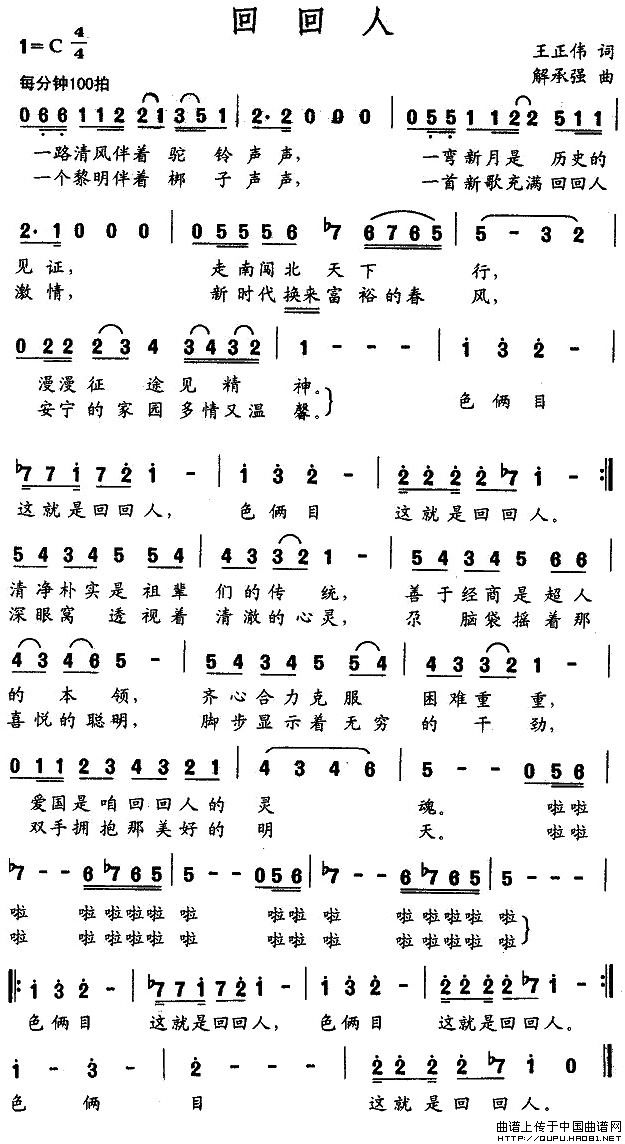 回回人
1=C 4/4
王正伟 词
每分钟100拍
解承强 曲
0 6 6 1 1 2 2 1 3 5 1 | 2· 2 0 0 0 | 0 5 5 1 1 2 2 5 1 1 |
一路清风伴着 驼 铃声声, 一弯新月是 历史的
一个黎明伴着 梆 子声声, 一首新歌充满 回回人
2· 1 0 0 0 | 0 5 5 5 5 6 ♭7 6 7 6 5 | 5 - 3 2 |
见证, 走南闯北 天下 行,
激情, 新时代换来富裕的春 风,
0 2 2 2 3 4 3 4 3 2 | 1 - - - | 1 3 2 - |
漫漫征 途见精 神。 色俩目
安宁的家园多情又温 馨。
♭7 7 1 7 2 1 - | 1 3 2 - | 2 2 2 2 2 ♭7 1 - :||
这就是回回人, 色俩目 这就是回回人。
5 4 3 4 5 5 4 | 4 3 3 2 1 - | 5 4 3 4 5 6 6 |
清净朴实是祖辈 们的传 统, 善于经商是超人
深眼窝 透视着 清澈的心灵, 尕 脑袋摇着那
4 3 4 6 5 - | 5 4 3 4 5 5 4 | 4 3 3 2 1 - |
的 本 领, 齐心合力克服 困难重 重,
喜悦的聪明, 脚步显示着无穷 的 干 劲,
0 1 1 2 3 4 3 2 1 | 4 3 4 6 | 5 - - 0 5 6 |
爱国是咱回回人的 灵 魂。 啦啦
双手拥抱那美好的 明 天。 啦啦
♭7 - - 6 ♭7 6 5 | 5 - - 0 5 6 | ♭7 - - 6 ♭7 6 5 | 5 - - - |
啦 啦 啦啦啦 啦 啦啦 啦 啦 啦啦啦 啦
啦 啦 啦啦啦 啦 啦啦 啦 啦 啦啦啦 啦
||: 1 3 2 - | ♭7 7 1 7 2 1 - | 1 3 2 - | 2 2 2 2 2 ♭7 1 - :||
色俩目 这就是回回人, 色俩目 这就是回回人。
1 - 3 - | 2 - - - | 2 2 2 2 ♭7 1 0 ||
色 俩 目 这就是 回回人。
曲谱上传于中国曲谱网
http://QUPU.HAO81.NET